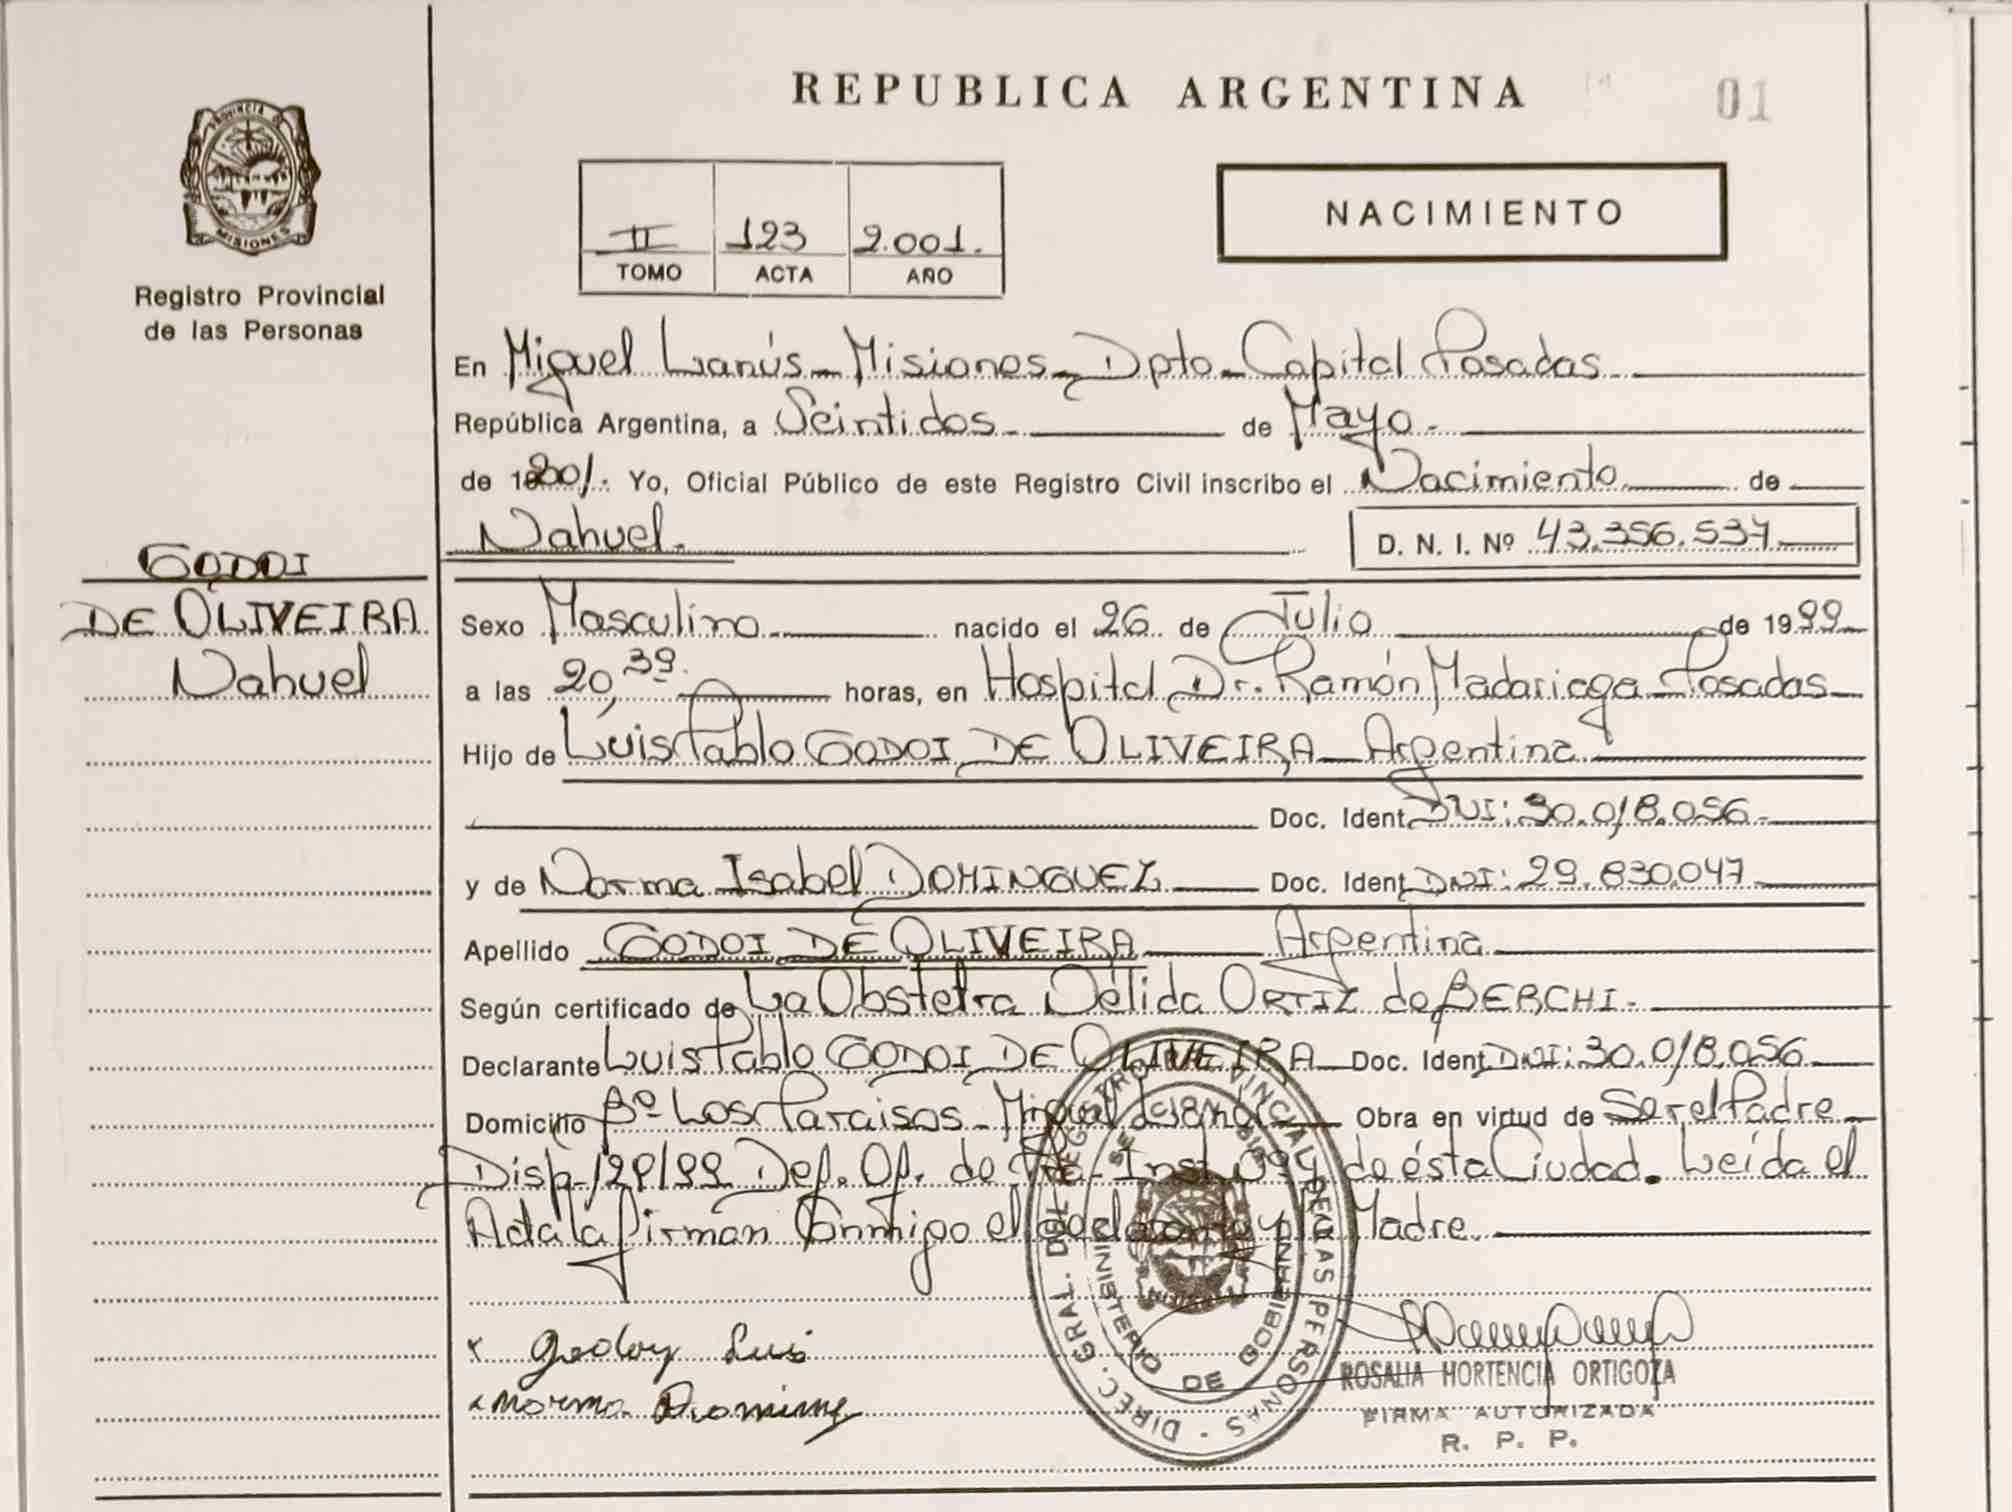 REPUBLICA ARGENTINA
01
PROVINCIA DE
MISIONES
Registro Provincial
de las Personas
II 123 2.001.
TOMO ACTA AÑO
NACIMIENTO
En Miguel Lanús - Misiones - Dpto - Capital Posadas
República Argentina, a Veintidos de Mayo.
de 2001. Yo, Oficial Público de este Registro Civil inscribo el Nacimiento de
Nahuel. D. N. I. Nº 43.356.537
GODOI
DE OLIVEIRA
Nahuel
Sexo Masculino nacido el 26 de Julio de 1999
a las 20,39. horas, en Hospital Dr. Ramón Madariaga - Posadas
Hijo de Luis Pablo GODOI DE OLIVEIRA - Argentina
Doc. Ident. DNI: 30.018.056
y de Norma Isabel DOMINGUEZ Doc. Ident. DNI: 29.830.047
Apellido GODOI DE OLIVEIRA Argentina
Según certificado de La Obstetra Délida ORTIZ de BERCHI.
Declarante Luis Pablo GODOI DE OLIVEIRA Doc. Ident. DNI: 30.018.056
Domicilio Bº Los Paraisos - Miguel Lanús Obra en virtud de Ser el Padre
Disp. 129/99 Def. Of. de de ésta Ciudad. Leída el
Acta la firman Conmigo el declarante y la Madre.
x Godoy Luis
x Norma
DIREC. GRAL. DEL REGISTRO PROVINCIAL DE LAS PERSONAS
MINISTERIO DE GOBIERNO
ROSALIA HORTENCIA ORTIGOZA
FIRMA AUTORIZADA
R. P. P.